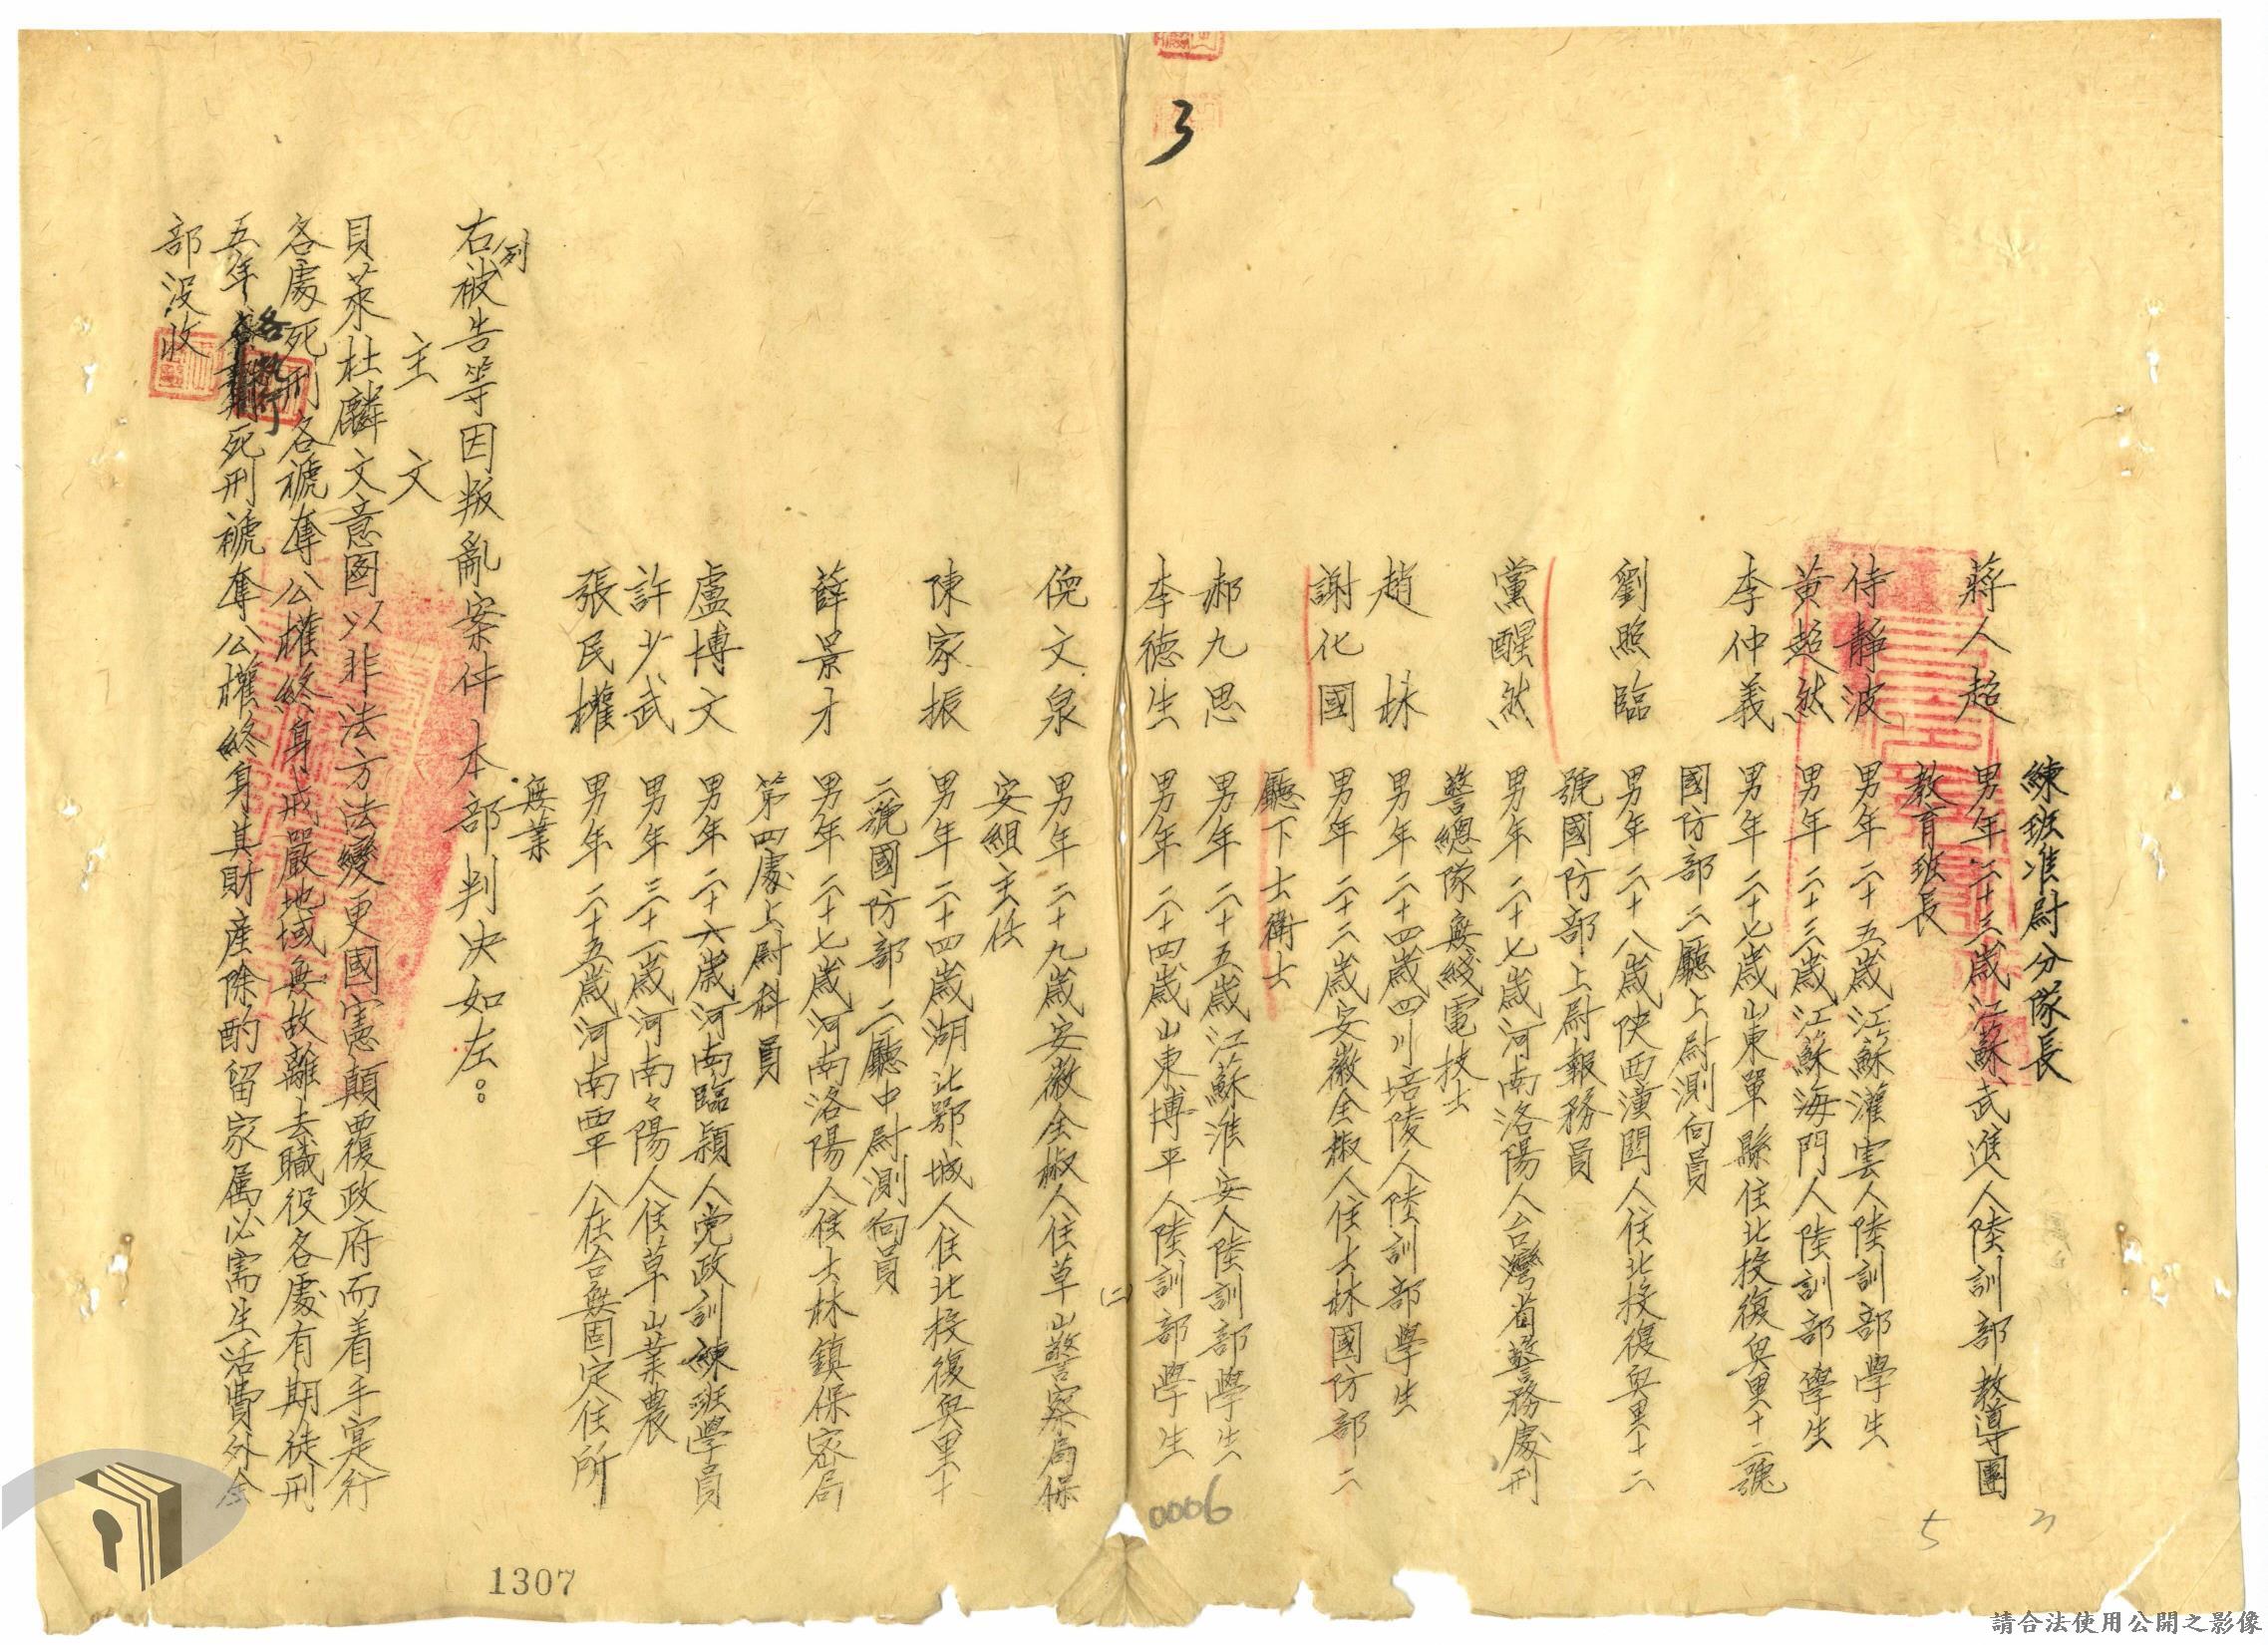 3
練班准尉分隊長
蔣人超 男年二十三歲江蘇武進人陸訓部教導團
教育班長
侍靜波 男年二十五歲江蘇灌雲人陸訓部學生
黃超然 男年二十三歲江蘇海門人陸訓部學生
李仲義 男年二十七歲山東單縣住北投復興里十二號
國防部二廳上尉測向員
劉照臨 男年二十八歲陝西潼関人住北投復興里十二
號國防部上尉報務員
黨醒然 男年二十七歲河南洛陽人台灣省警務處刑
警總隊無綫電技士
趙林 男年二十四歲四川培陵人陸訓部學生
謝化國 男年二十二歲安徽全椒人住士林國防部二
廳下士衛士
郝九思 男年二十五歲江蘇淮安人陸訓部學生
李德生 男年二十四歲山東博平人陸訓部學生
(二)
倪文泉 男年二十九歲安徽全椒人住草山警察局保
安組主任
陳家振 男年二十四歲湖北鄂城人住北投復興里十
二號國防部二廳中尉測向員
薛景才 男年二十七歲河南洛陽人住士林鎮保密局
第四處上尉科員
盧博文 男年二十六歲河南臨頴人党政訓練班學員
許少武 男年三十一歲河南々陽人住草山業農
張民權 男年二十五歲河南西平人在台無固定住所
無業
右列被告等因叛亂案件本部判決如左：
主文
貝萊杜麟文意图以非法方法變更國憲顛覆政府而着手寔行
各處死刑各褫奪公權終身戒嚴地域無故離去職役各處有期徒刑
五年各執行死刑褫奪公權終身其財產除酌留家属必需生活費外全
部沒收
0006
5
1307
請合法使用公開之影像